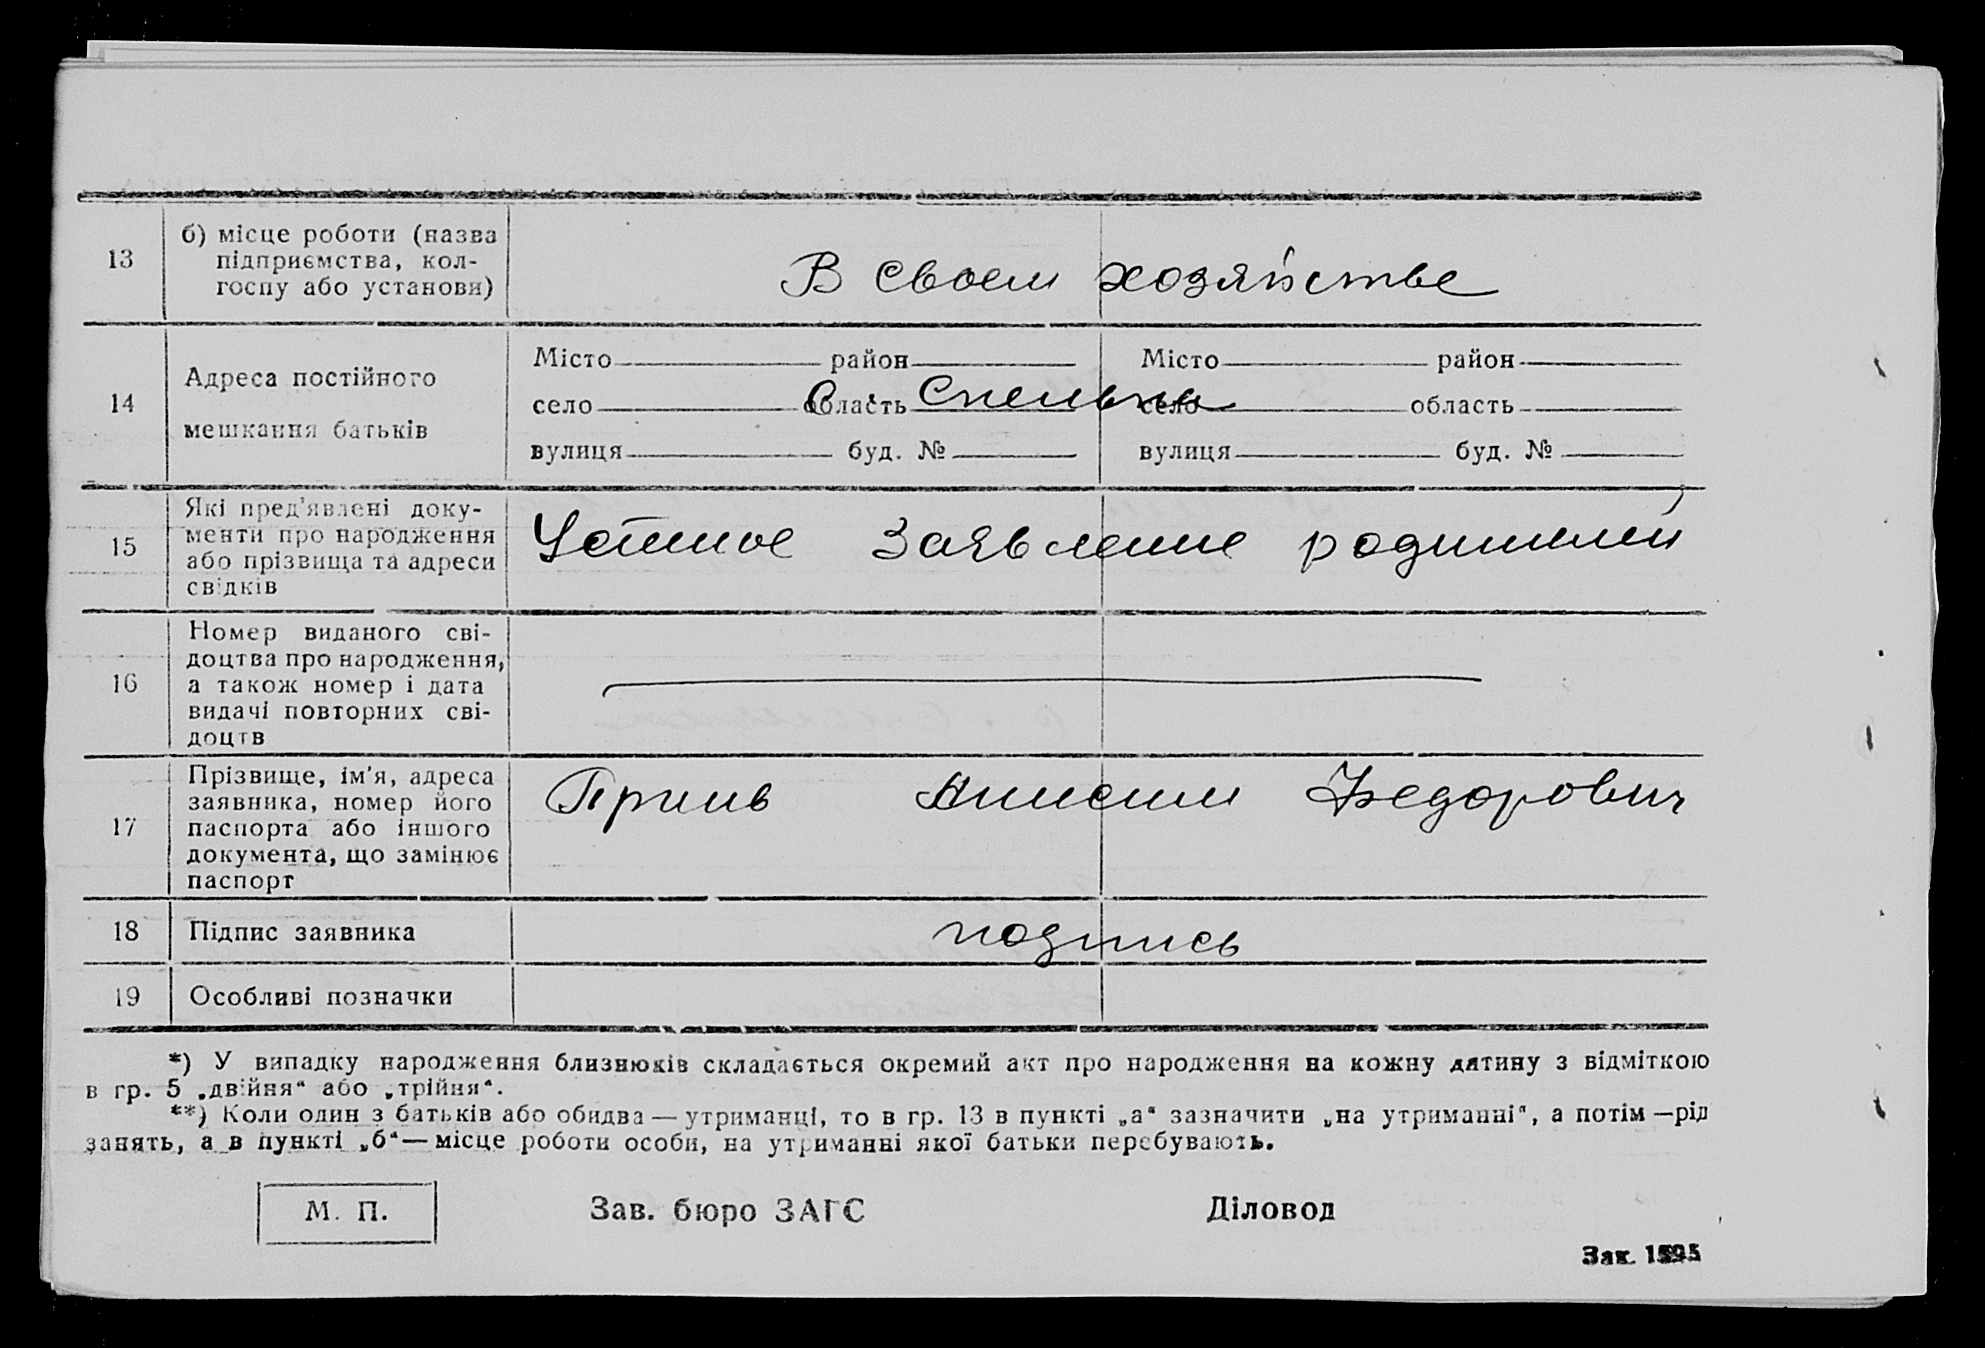 13
б) місце роботи (назва
підприємства, кол-
госпу або установи)
В своем хозяйстве
14
Адреса постійного
мешкання батьків
Місто район Місто район
село область село область
с. Спельки
вулиця буд. № вулиця буд. №
15
Які пред'явлені доку-
менти про народження
або прізвища та адреси
свідків
Устное заявление родителей
16
Номер виданого сві-
доцтва про народження,
а також номер і дата
видачі повторних сві-
доцтв
17
Прізвище, ім'я, адреса
заявника, номер його
паспорта або іншого
документа, що замінює
паспорт
Федорович
18
Підпис заявника
подпись
19
Особливі позначки
*) У випадку народження близнюків складається окремий акт про народження на кожну дитину з відміткою
в гр. 5 „двійня“ або „трійня“.
**) Коли один з батьків або обидва — утриманці, то в гр. 13 в пункті „а“ зазначити „на утриманні“, а потім — рід
занять, а в пункті „б“ — місце роботи особи, на утриманні якої батьки перебувають.
М. П.
Зав. бюро ЗАГС
Діловод
Зак. 1595